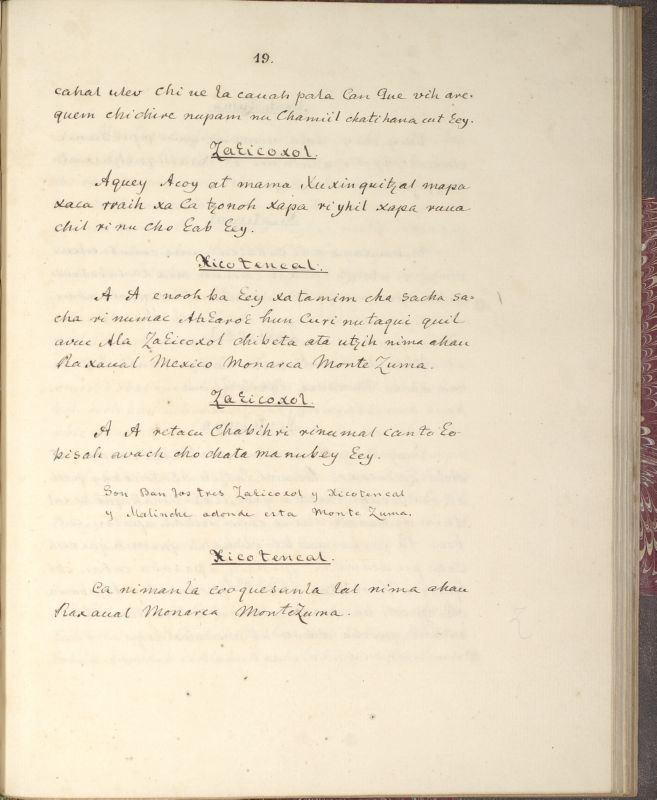 19.
cahal ulev chi ue la cauah pala Can Que vih are-
quem chichire nupam nu Chamiil chatihana cut Eey.
Zaεicoxol.
Aquey Acoy at mama Xuxinquitzal mapa
xaca rraih xa Ca tzonoh xapa riyhil xapa ruua
chil ri nu cho Eab Eey.
Xicotencal.
A A enooh ba Eey xatamim cha sacha sa-
cha ri numac Ahεaroε hun Curi nutaqui quil
avuc Ala Zaεicoxol chibeta ata utzih nima ahau
Raxaual Mexico Monarca MonteZuma.
Zaεicoxol.
A A retacu Chabihri rinumal canto εo
pisah avach cho chata ma nubey Eey.
Son Ban los tres Zaεicoxol y Xicotencal
y Malinche adonde esta MonteZuma.
Xicotencal.
Ca nimanla cooquesanla lal nima ahau
Raxaual Monarca MonteZuma.